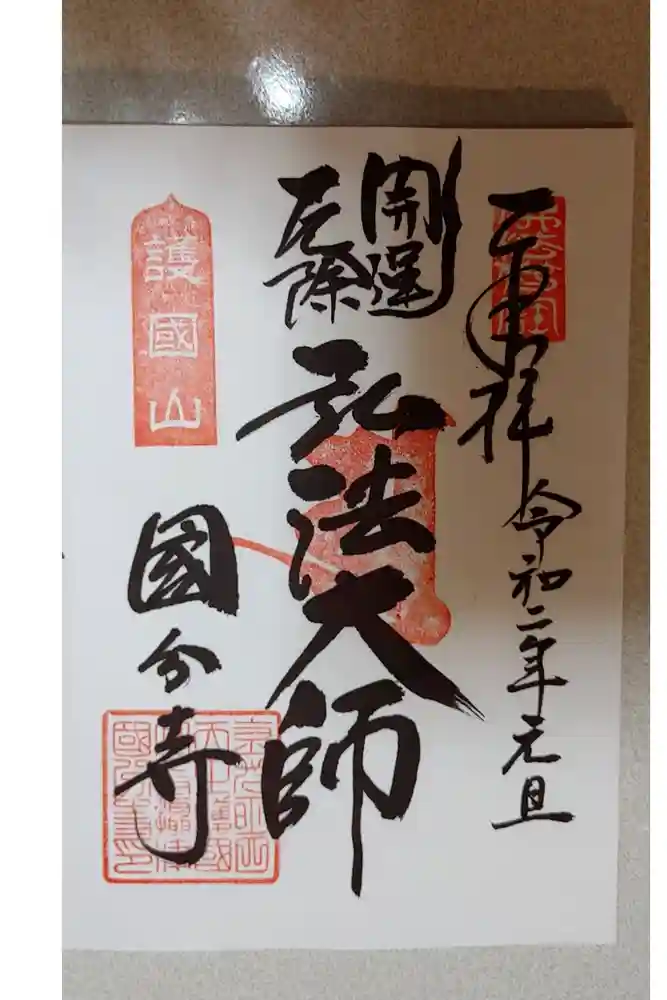 奉拝 令和二年元旦
開運
厄除
弘法大師
護國山
國分寺